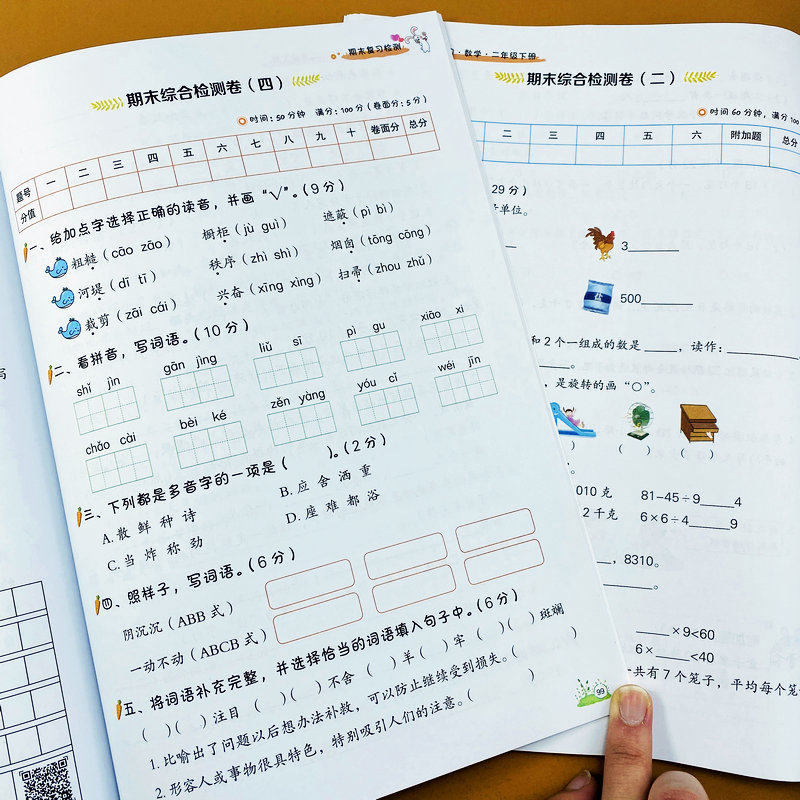 期末复习检测
期末综合检测卷（四）
时间：50分钟 满分：100分（卷面分：5分）
题号 一 二 三 四 五 六 七 八 九 十 卷面分 总分
分值
一、给加点字选择正确的读音，并画“√”。（9分）
粗糙（cāo zāo） 橱柜（jù guì） 遮蔽（pì bì）
河堤（dī tī） 秩序（zhì shì） 烟囱（tōng cōng）
裁剪（zāi cái） 兴奋（xīng xìng） 扫帚（zhou zhǔ）
二、看拼音，写词语。（10分）
shǐ jìn gān jìng liǔ sī pì gu xiāo xi
chǎo cài bèi ké zěn yàng yóu cǐ wéi jīn
三、下列都是多音字的一项是（ ）。（2分）
A. 散 鲜 种 诗 B. 应 舍 洒 重
C. 当 炸 称 劲 D. 座 难 都 浴
四、照样子，写词语。（6分）
阴沉沉（ABB式）
一动不动（ABCB式）
五、将词语补充完整，并选择恰当的词语填入句子中。（6分）
（ ）（ ）注目 （ ）（ ）不舍 （ ）羊（ ）牢 （ ）（ ）斑斓
1. 比喻出了问题以后想办法补救，可以防止继续受到损失。（ ）
2. 形容人或事物很具特色，特别吸引人们的注意。（ ）
99
数学·二年级下册
期末综合检测卷（二）
时间60分钟，满分100
二 三 四 五 六 附加题 总分
29分）
单位。
3______
盐
500______
和2个一组成的数是_____，读作：_______
_____。
，是旋转的画“○”。
（ ） （ ）
010克 81-45÷9_____4
2千克 6×6÷4_____9
_____，8310。
_____。
_____×9<60
6×_____<40
共有7个笼子，平均每个笼